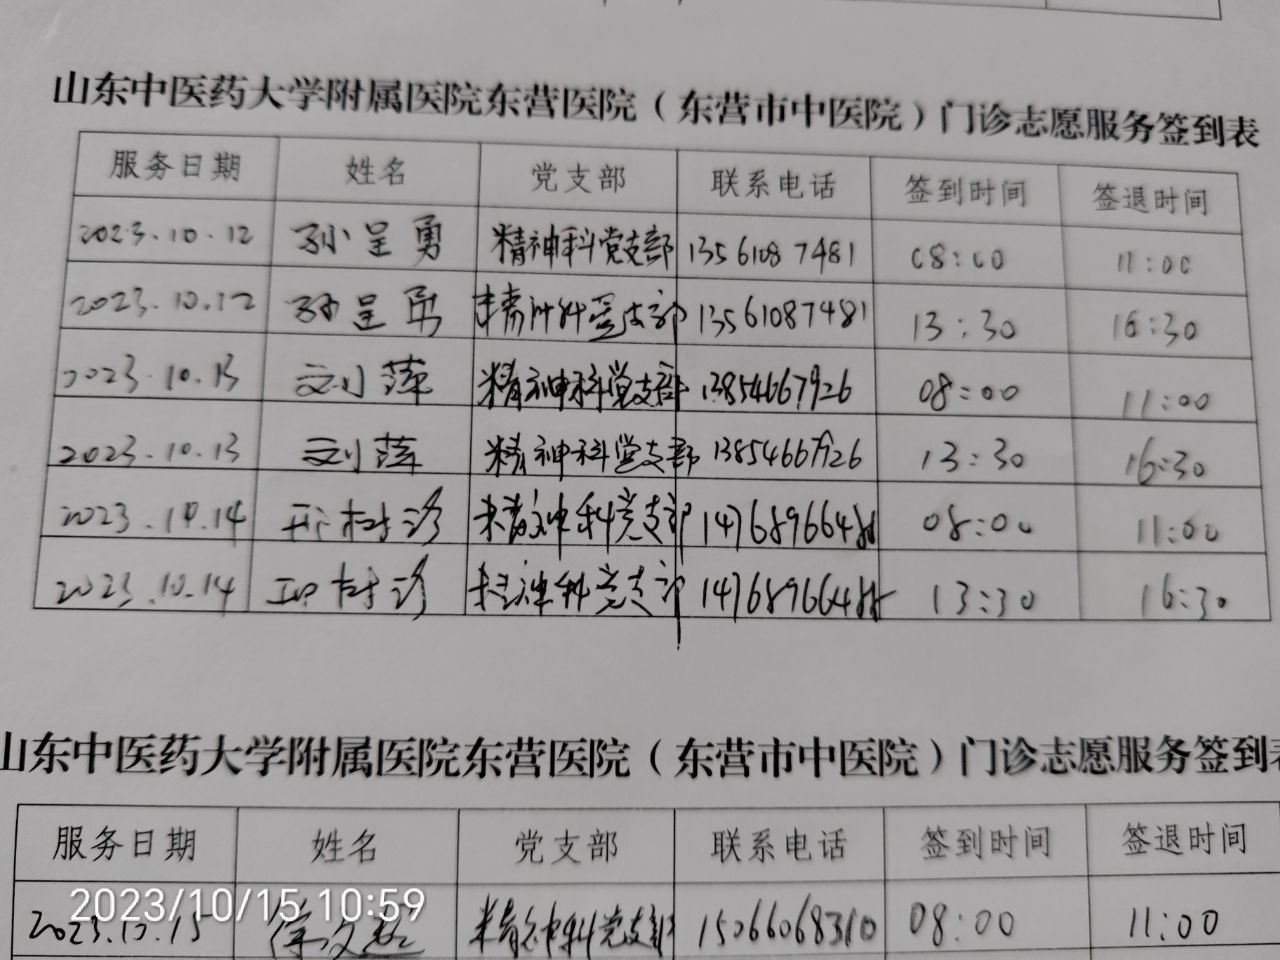 山东中医药大学附属医院东营医院（东营市中医院）门诊志愿服务签到表
服务日期 姓名 党支部 联系电话 签到时间 签退时间
2023.10.12 孙呈勇 精神科党支部 13561087481 08:00 11:00
2023.10.12 孙呈勇 精神科党支部 13561087481 13:30 16:30
2023.10.13 刘萍 精神科党支部 13854667926 08:00 11:00
2023.10.13 刘萍 精神科党支部 13854667926 13:30 16:30
2023.10.14 精神科党支部 08:00 11:00
2023.10.14 精神科党支部 13:30 16:30
山东中医药大学附属医院东营医院（东营市中医院）门诊志愿服务签到表
服务日期 姓名 党支部 联系电话 签到时间 签退时间
2023.10.15 精神科党支部 15066068310 08:00 11:00
2023/10/15 10:59